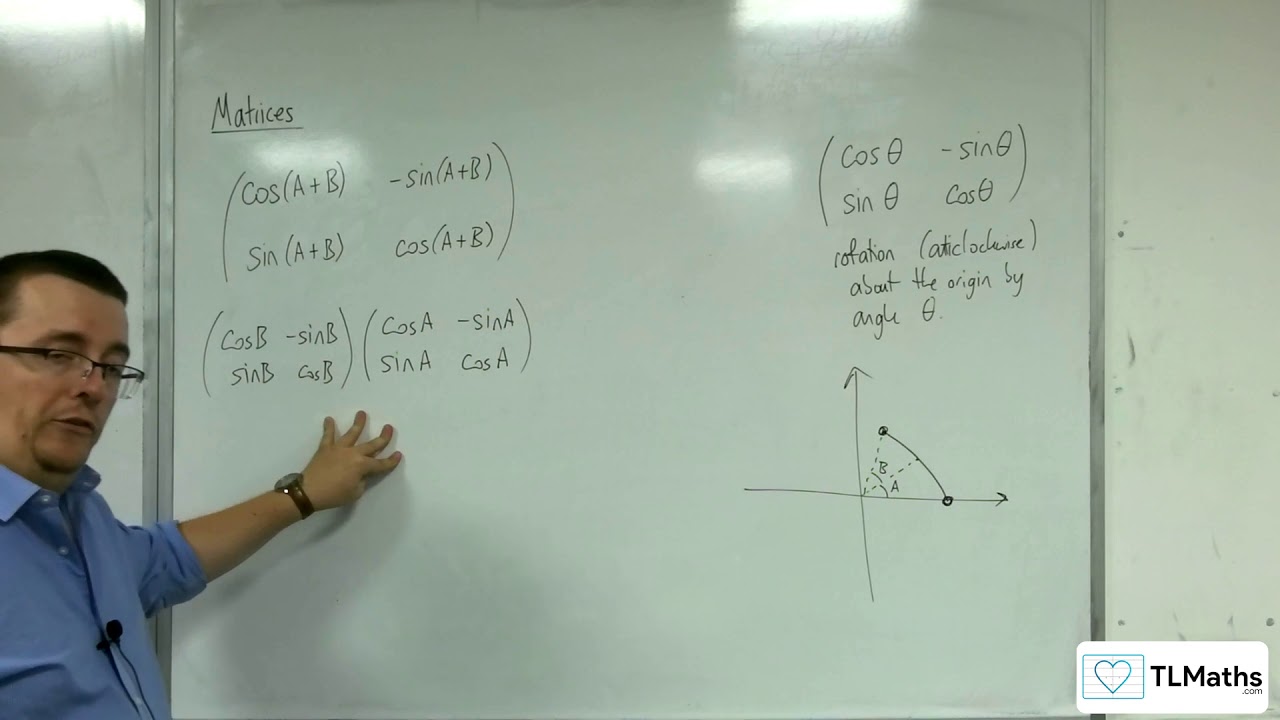 Matrices
cos(A+B) -sin(A+B)
sin(A+B) cos(A+B)
cosB -sinB cosA -sinA
sinB cosB sinA cosA
cosθ -sinθ
sinθ cosθ
rotation (anticlockwise)
about the origin by
angle θ.
B
A
TLMaths
.com